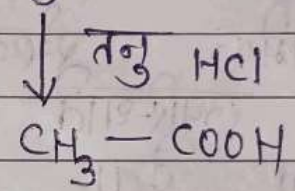 तनु HCl
CH₃ — COOH